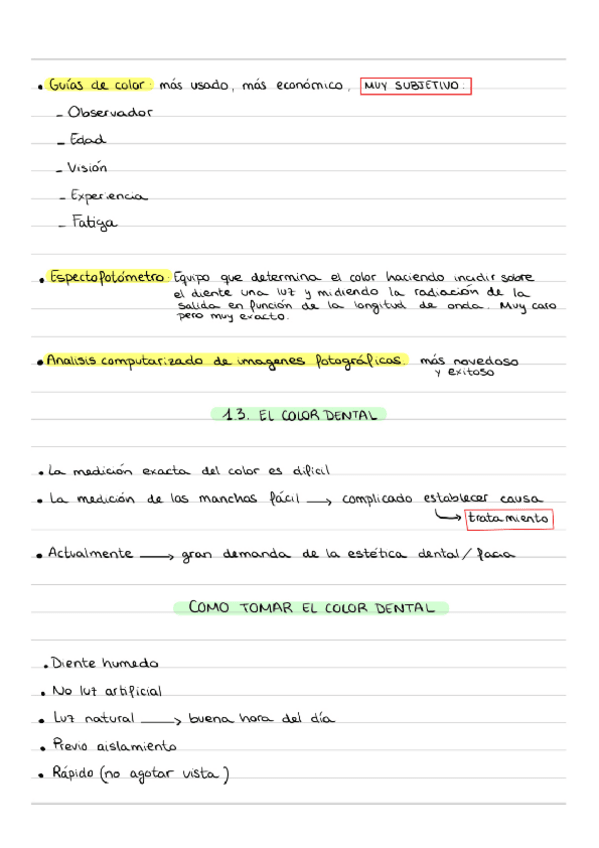 • Guías de color: más usado, más económico, MUY SUBJETIVO.
- Observador
- Edad
- Visión
- Experiencia
- Fatiga
• Espectofotómetro: Equipo que determina el color haciendo incidir sobre
el diente una luz y midiendo la radiación de la
salida en función de la longitud de onda. Muy caro
pero muy exacto.
• Analisis computarizado de imagenes fotográficas. más novedoso
y exitoso
1.3. EL COLOR DENTAL
• La medición exacta del color es dificil
• La medición de las manchas fácil → complicado establecer causa
↳ tratamiento
• Actualmente → gran demanda de la estética dental / facia
COMO TOMAR EL COLOR DENTAL
• Diente humedo
• No luz artificial
• Luz natural → buena hora del día
• Previo aislamiento
• Rápido (no agotar vista)